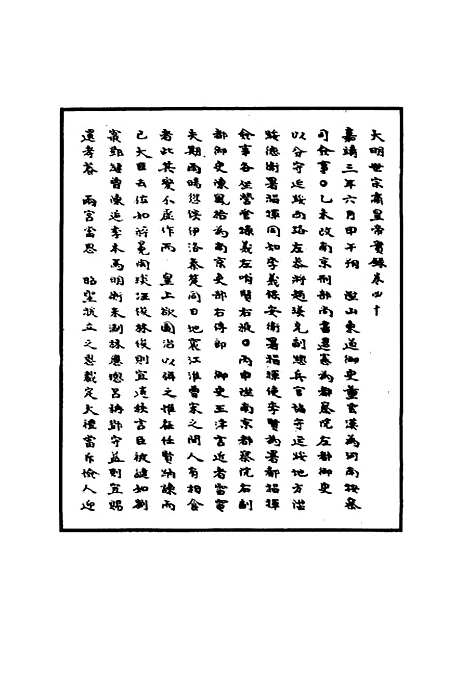 大明世宗肅皇帝實錄卷四十
嘉靖三年六月甲午朔　陞山東道御史董雲漢為河南按察
司僉事○乙未改南京刑部尚書趙鑑為都察院左都御史
以分守延綏西路左參將趙瑛充副總兵官協守延綏地方
綏德衛署指揮同知李義保安衛署指揮使李賢為署都指揮
僉事各坐營管操義左哨賢右掖○丙申陞南京都察院右副
都御史陳鳳梧為南京吏部右侍郎　御史王泮言近者雷電
失期雨暘愆候伊洛秦楚同日地震江淮曹宋之間人有相食
者此其變不虛作而　皇上欲圖治以弭之惟在任賢納諫而
已大臣去位如蔣冕陶琰汪俊林俊則宜遣材言臣被譴如劉
寀鄧繼曾陳逅季本馬明衡朱淛林應驄呂柟鄒守益則宜賜
還孝養　兩宮當思　昭聖援立之恩裁定大禮當斥憸人迎